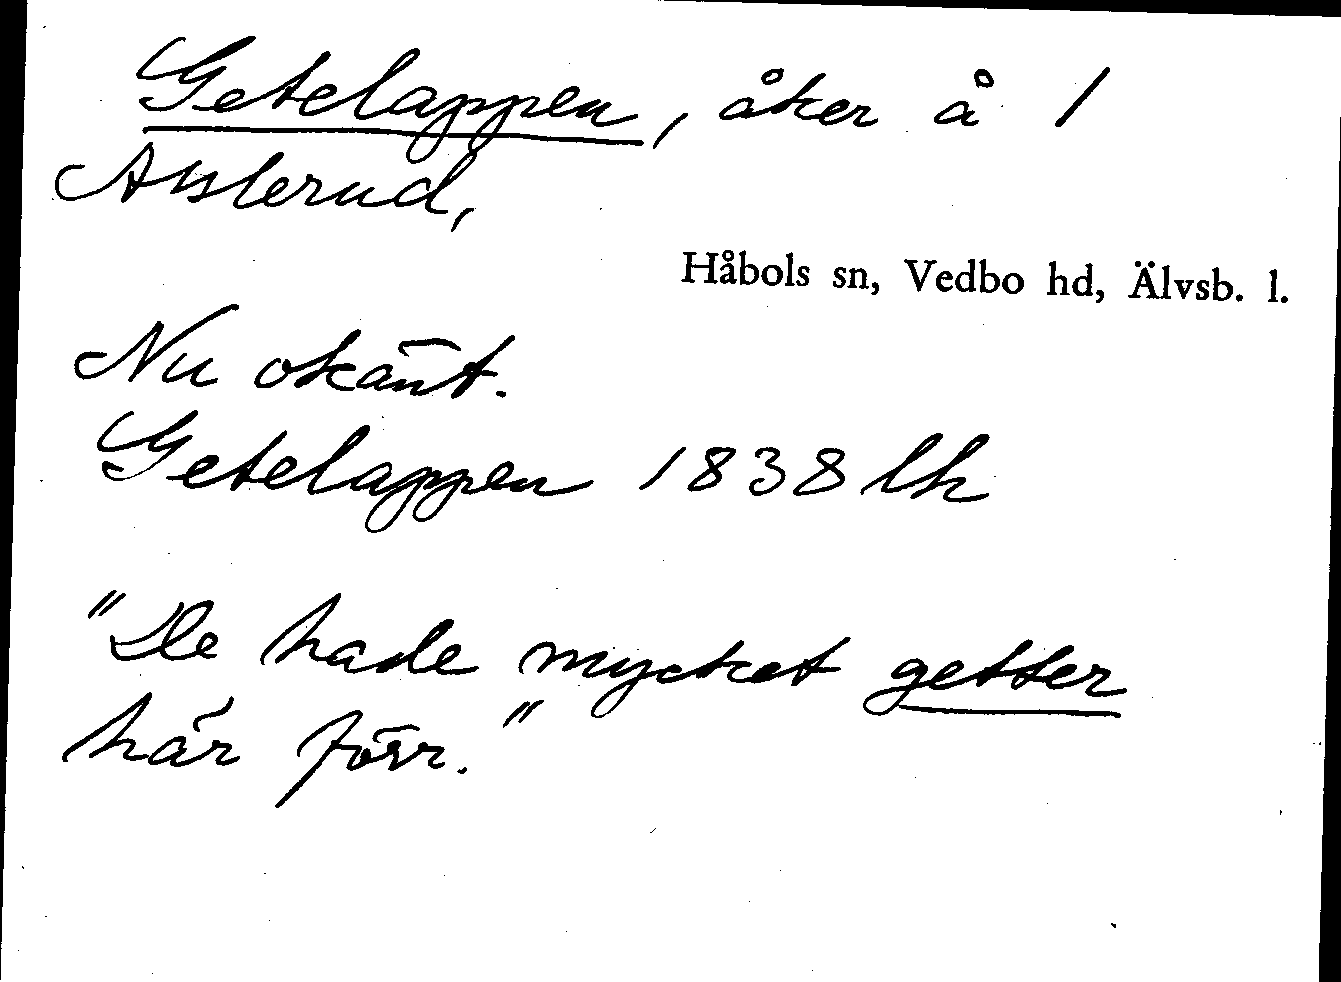 Getelappen, åker å 1
Håbols sn, Vedbo hd, Älvsb. l.
Nu okänt.
Getelappen 1838 lh
"De hade mycket getter
här förr."